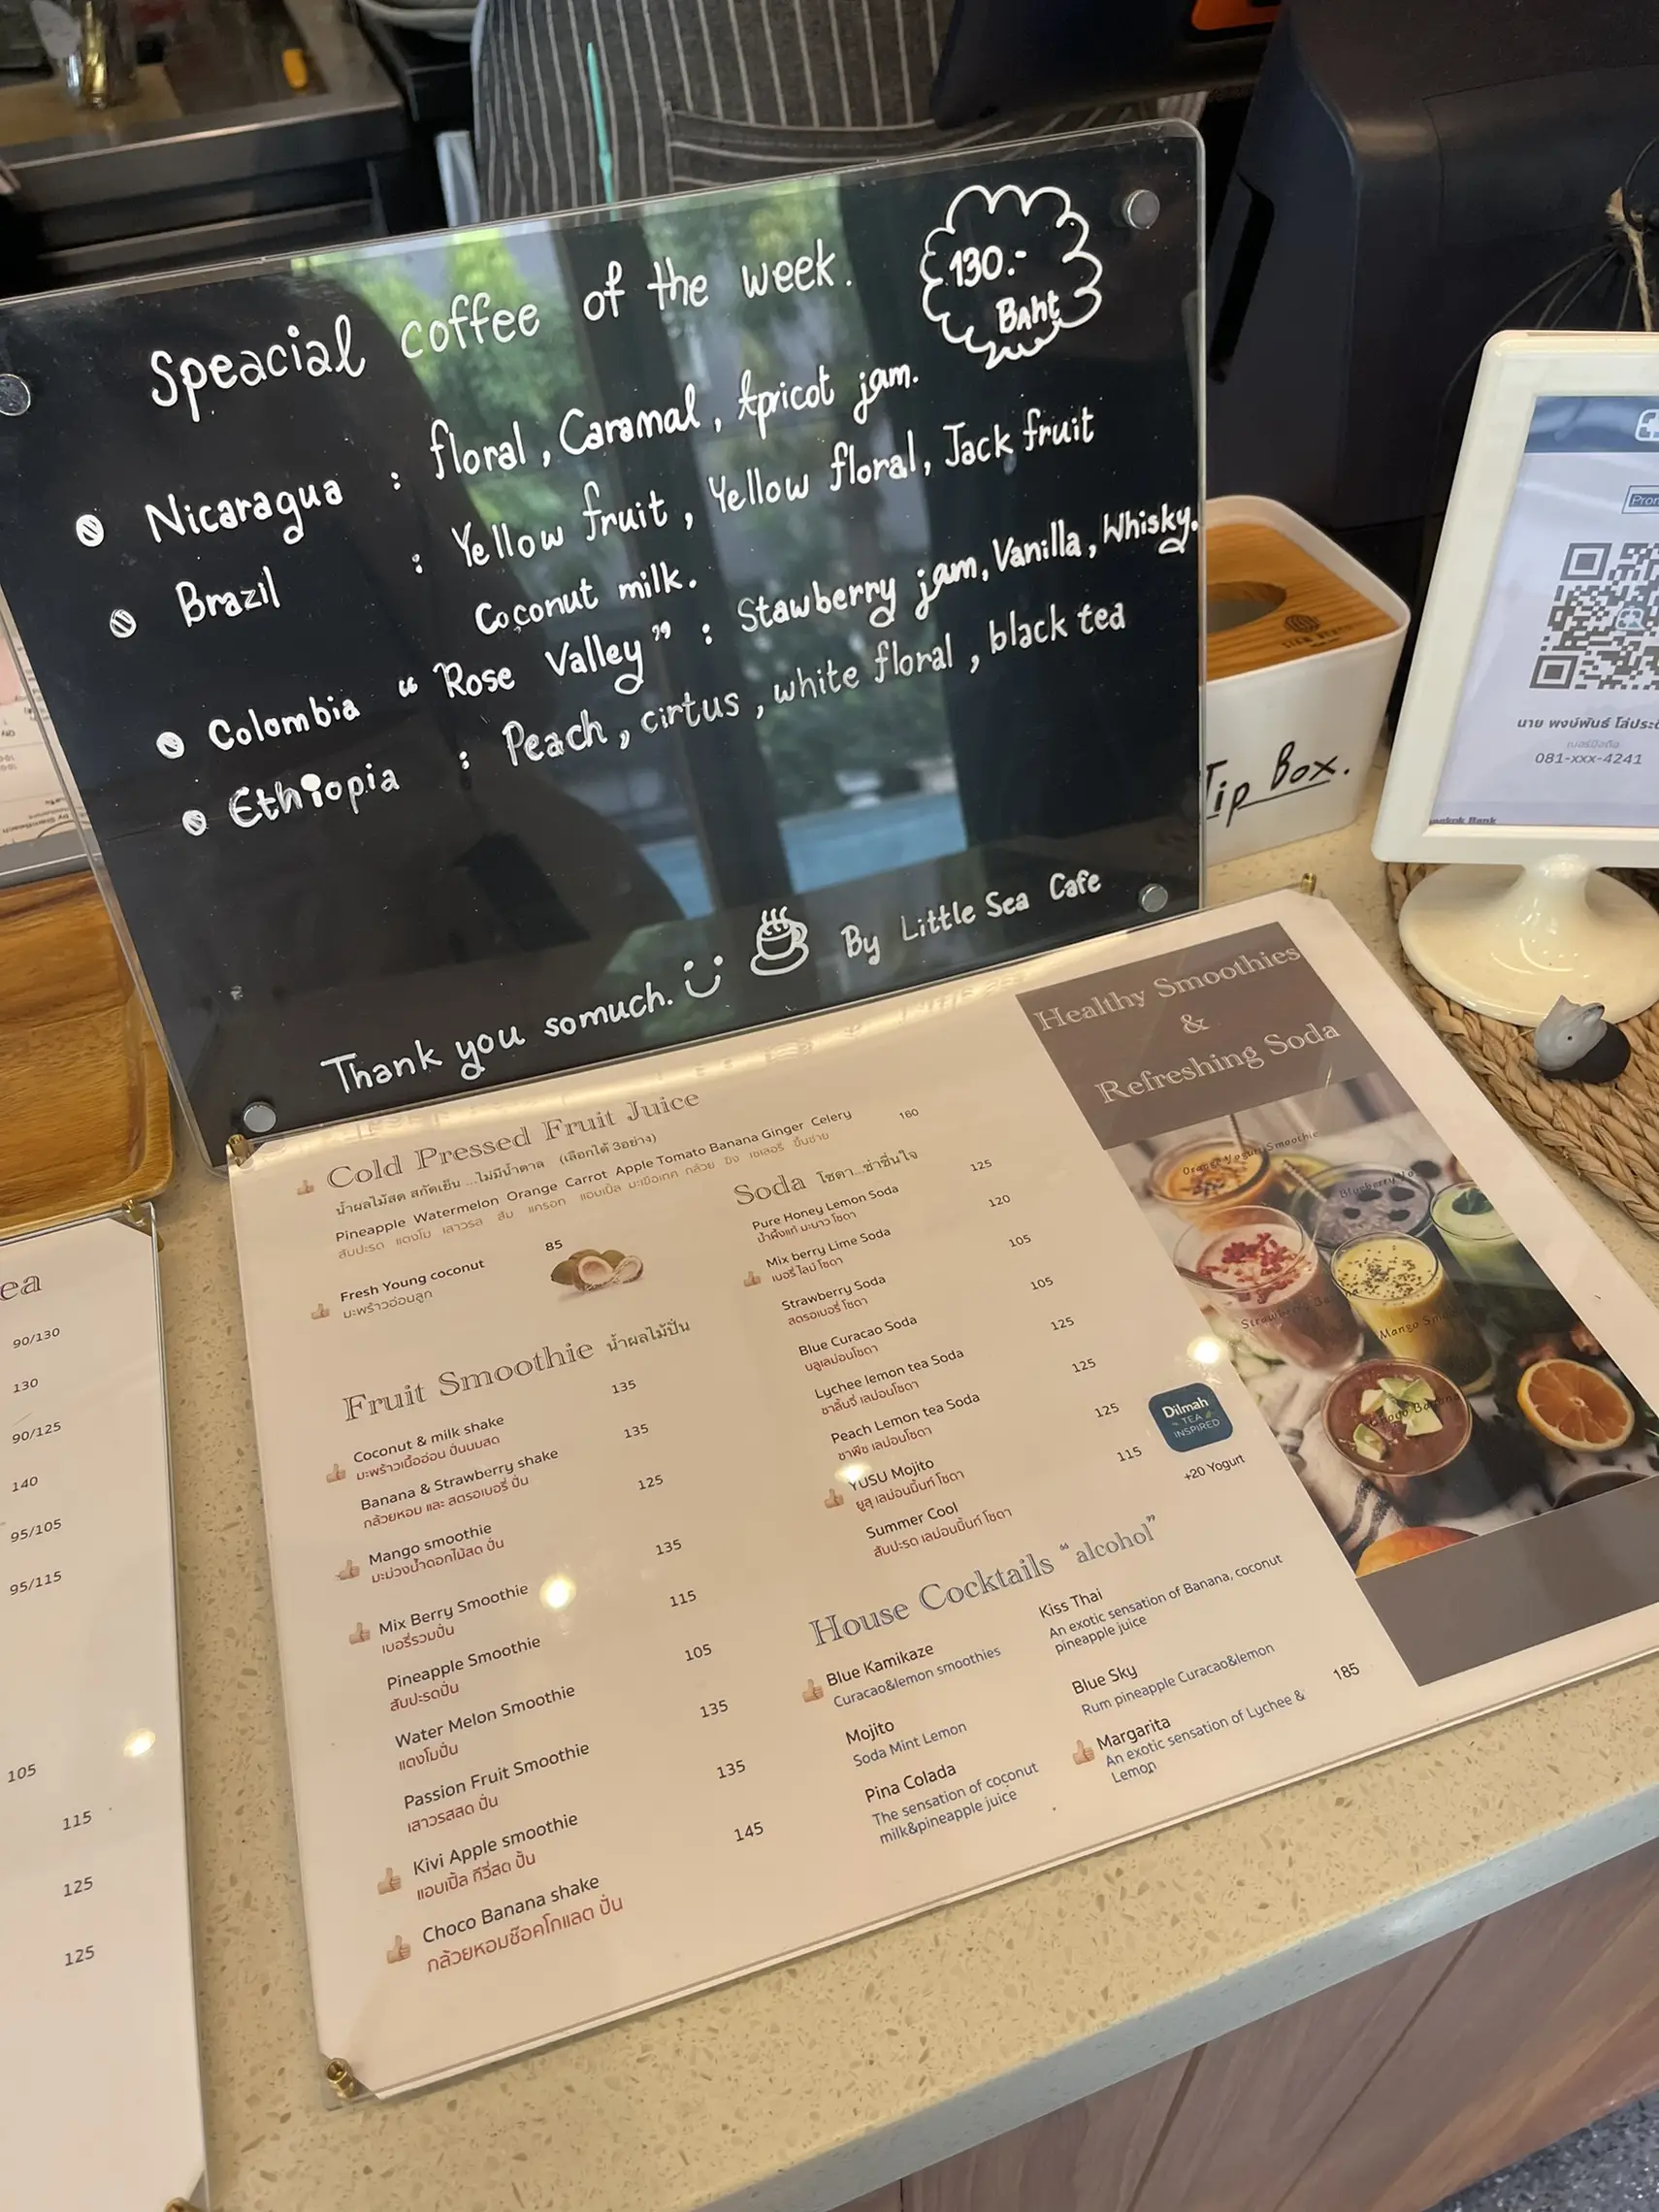 Speacial coffee of the week.
130.-
Baht
Nicaragua : floral, Caramal, Apricot jam.
Brazil : Yellow fruit, Yellow floral, Jack fruit
Coconut milk.
Colombia “Rose Valley” : Stawberry jam, Vanilla, Whisky.
Ethiopia : Peach, cirtus, white floral, black tea
Thank you somuch. By Little Sea Cafe
Tip Box.
นาย พงษ์พันธ์
เบอร์มือถือ
081-xxx-4241
Cold Pressed Fruit Juice
น้ำผลไม้สด สกัดเย็น ...ไม่มีน้ำตาล (เลือกได้ 3อย่าง)
Pineapple Watermelon Orange Carrot Apple Tomato Banana Ginger Celery 160
สับปะรด แตงโม เสาวรส ส้ม แครอท แอบเปิ้ล มะเขือเทศ กล้วย ขิง เซเลอรี่ ขึ้นช่าย
Fresh Young coconut 85
มะพร้าวอ่อนลูก
Fruit Smoothie น้ำผลไม้ปั่น
Coconut & milk shake 135
มะพร้าวเนื้ออ่อน ปั่นนมสด
Banana & Strawberry shake 135
กล้วยหอม และ สตรอเบอรี่ ปั่น
Mango smoothie 125
มะม่วงน้ำดอกไม้สด ปั่น
Mix Berry Smoothie 135
เบอรี่รวมปั่น
Pineapple Smoothie 115
สับปะรดปั่น
Water Melon Smoothie 105
แตงโมปั่น
Passion Fruit Smoothie 135
เสาวรสสด ปั่น
Kivi Apple smoothie 135
แอบเปิ้ล กีวี่สด ปั่น
Choco Banana shake 145
กล้วยหอมช๊อคโกแลต ปั่น
Soda โซดา...ซ่าชื่นใจ
Pure Honey Lemon Soda 125
น้ำผึ้งแท้ มะนาว โซดา
Mix berry Lime Soda 120
เบอรี่ ไลม์ โซดา
Strawberry Soda 105
สตรอเบอรี่ โซดา
Blue Curacao Soda 105
บลูเลม่อนโซดา
Lychee lemon tea Soda 125
ชาลิ้นจี่ เลม่อนโซดา
Peach Lemon tea Soda 125
ชาพีช เลม่อนโซดา
YUSU Mojito 125
ยูสุ เลม่อนมิ้นท์ โซดา
Summer Cool 115
สับปะรด เลม่อนมิ้นท์ โซดา
Dilmah
TEA
INSPIRED
+20 Yogurt
House Cocktails “alcohol”
Blue Kamikaze
Curacao&lemon smoothies
Mojito
Soda Mint Lemon
Pina Colada
The sensation of coconut
milk&pineapple juice
Kiss Thai
An exotic sensation of Banana, coconut
pineapple juice
Blue Sky
Rum pineapple Curacao&lemon
Margarita 185
An exotic sensation of Lychee &
Lemon
Healthy Smoothies
&
Refreshing Soda
Orange Yogurt Smoothie
ea
90/130
130
90/125
140
95/105
95/115
105
115
125
125